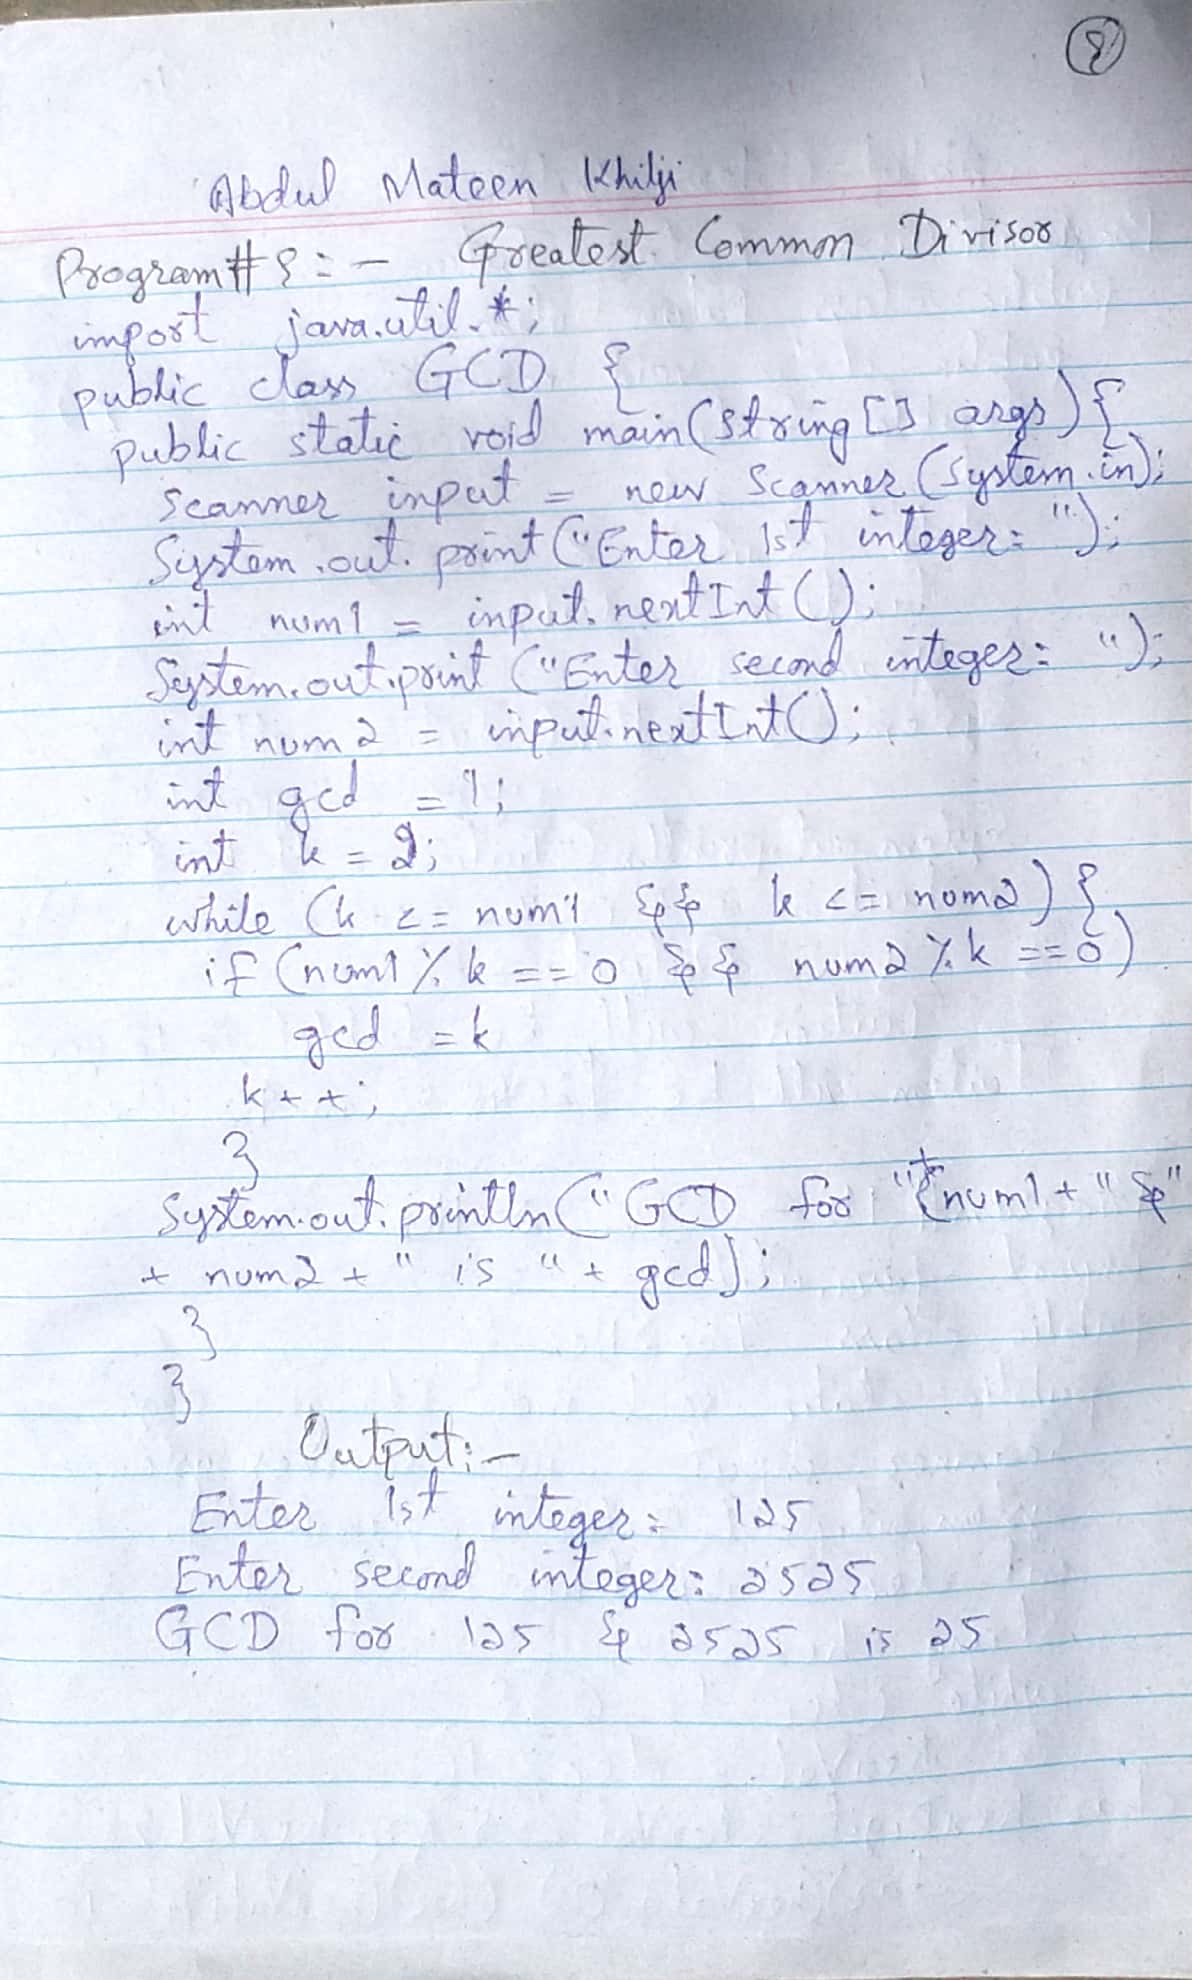 8
Abdul Mateen Khilji
Program # 8 : - Greatest Common Divisor
import java.util.*;
public class GCD {
public static void main(string[] args) {
Scanner input = new Scanner (System.in);
System.out.print("Enter 1st integer: ");
int num1 = input.nextInt();
System.out.print ("Enter second integer: ");
int num2 = input.nextInt();
int gcd = 1;
int k = 2;
while (k <= num1 && k <= num2) {
if (num1 % k == 0 && num2 % k == 0)
gcd = k
k++;
}
System.out.println("GCD for "+num1+" &"
+ num2 + " is " + gcd);
}
}
Output:-
Enter 1st integer: 125
Enter second integer: 2525
GCD for 125 & 2525 is 25